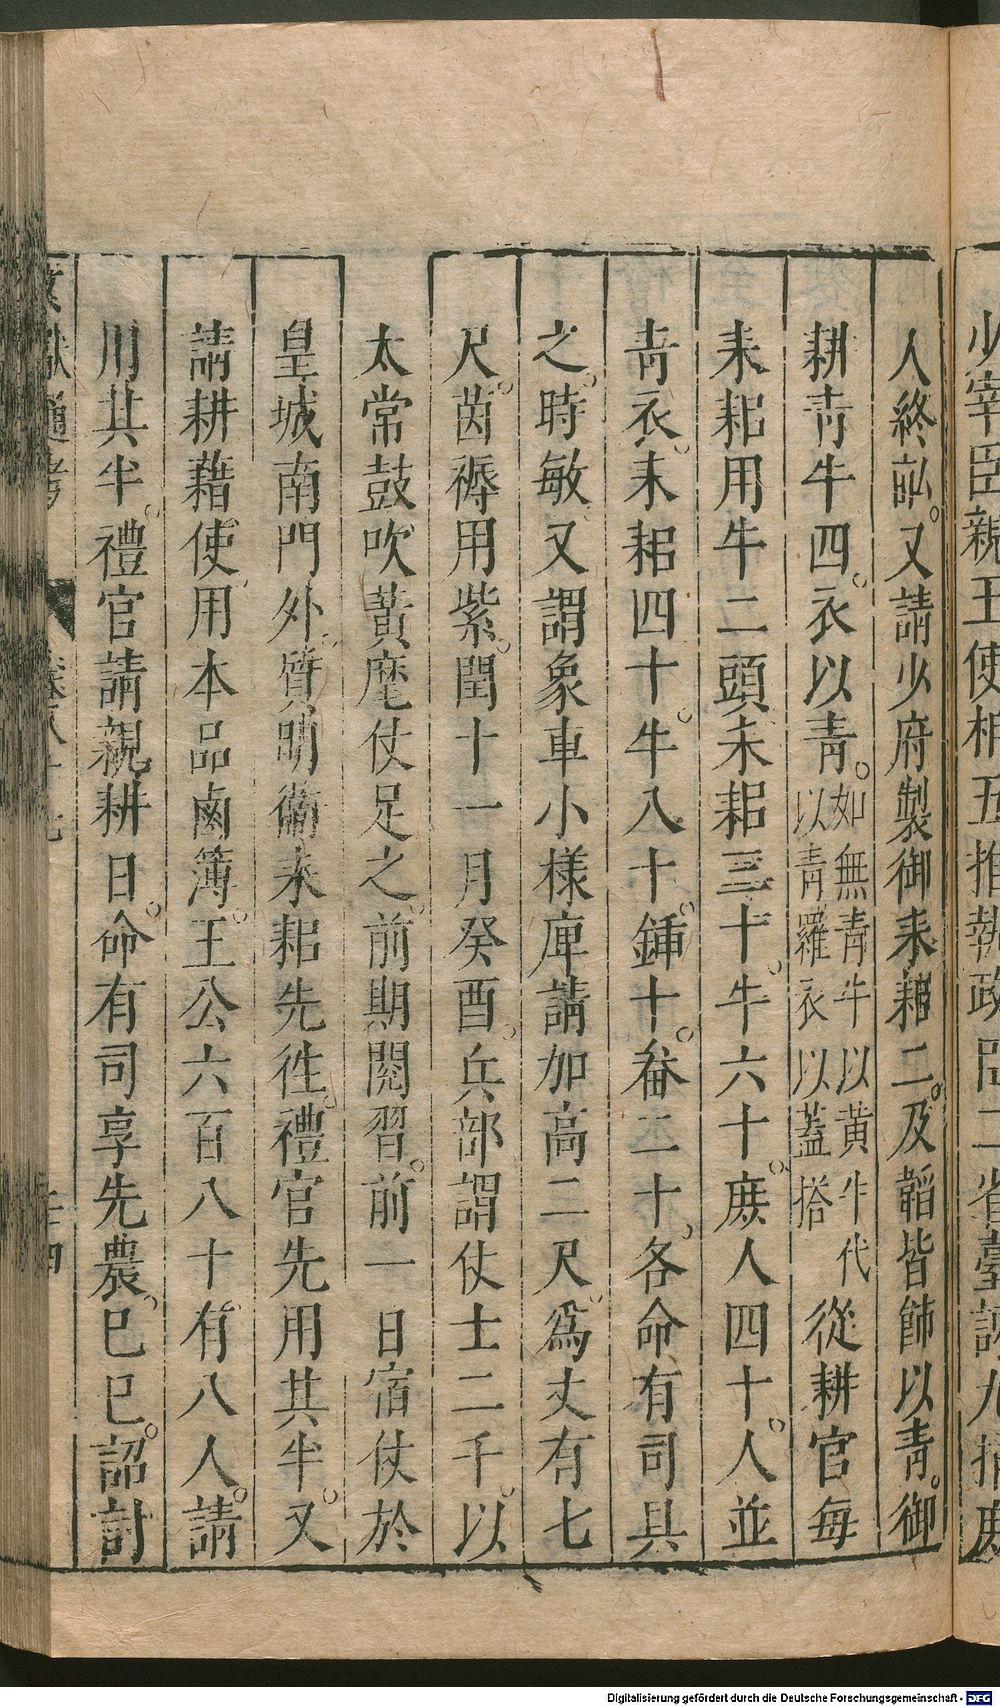 少宰臣親王使相五推執政
人終畝。又請少府製御耒耜二。及韜皆飾以青。御
耕青牛四。衣以青。如無青牛以黃牛代以青羅衣以蓋搭從耕官每
耒耜用牛二頭耒耜三十。牛六十。庶人四十。人並
青衣。耒耜四十。牛八十。鍤十。畚二十。各命有司具
之。時敏又謂象車小樣庳請加高二尺。爲丈有七
尺。茵褥用紫。閏十一月癸酉。兵部謂仗士二千。以
太常鼓吹黃麾仗足之。前期閱習。前一日宿仗於
皇城南門外。質明衛耒耜先徃。禮官先用其半。又
請耕藉使用本品鹵簿。王公六百八十有八人。請
用其半。禮官請親耕日。命有司享先農。巳巳。詔討
Digitalisierung gefördert durch die Deutsche Forschungsgemeinschaft - DFG